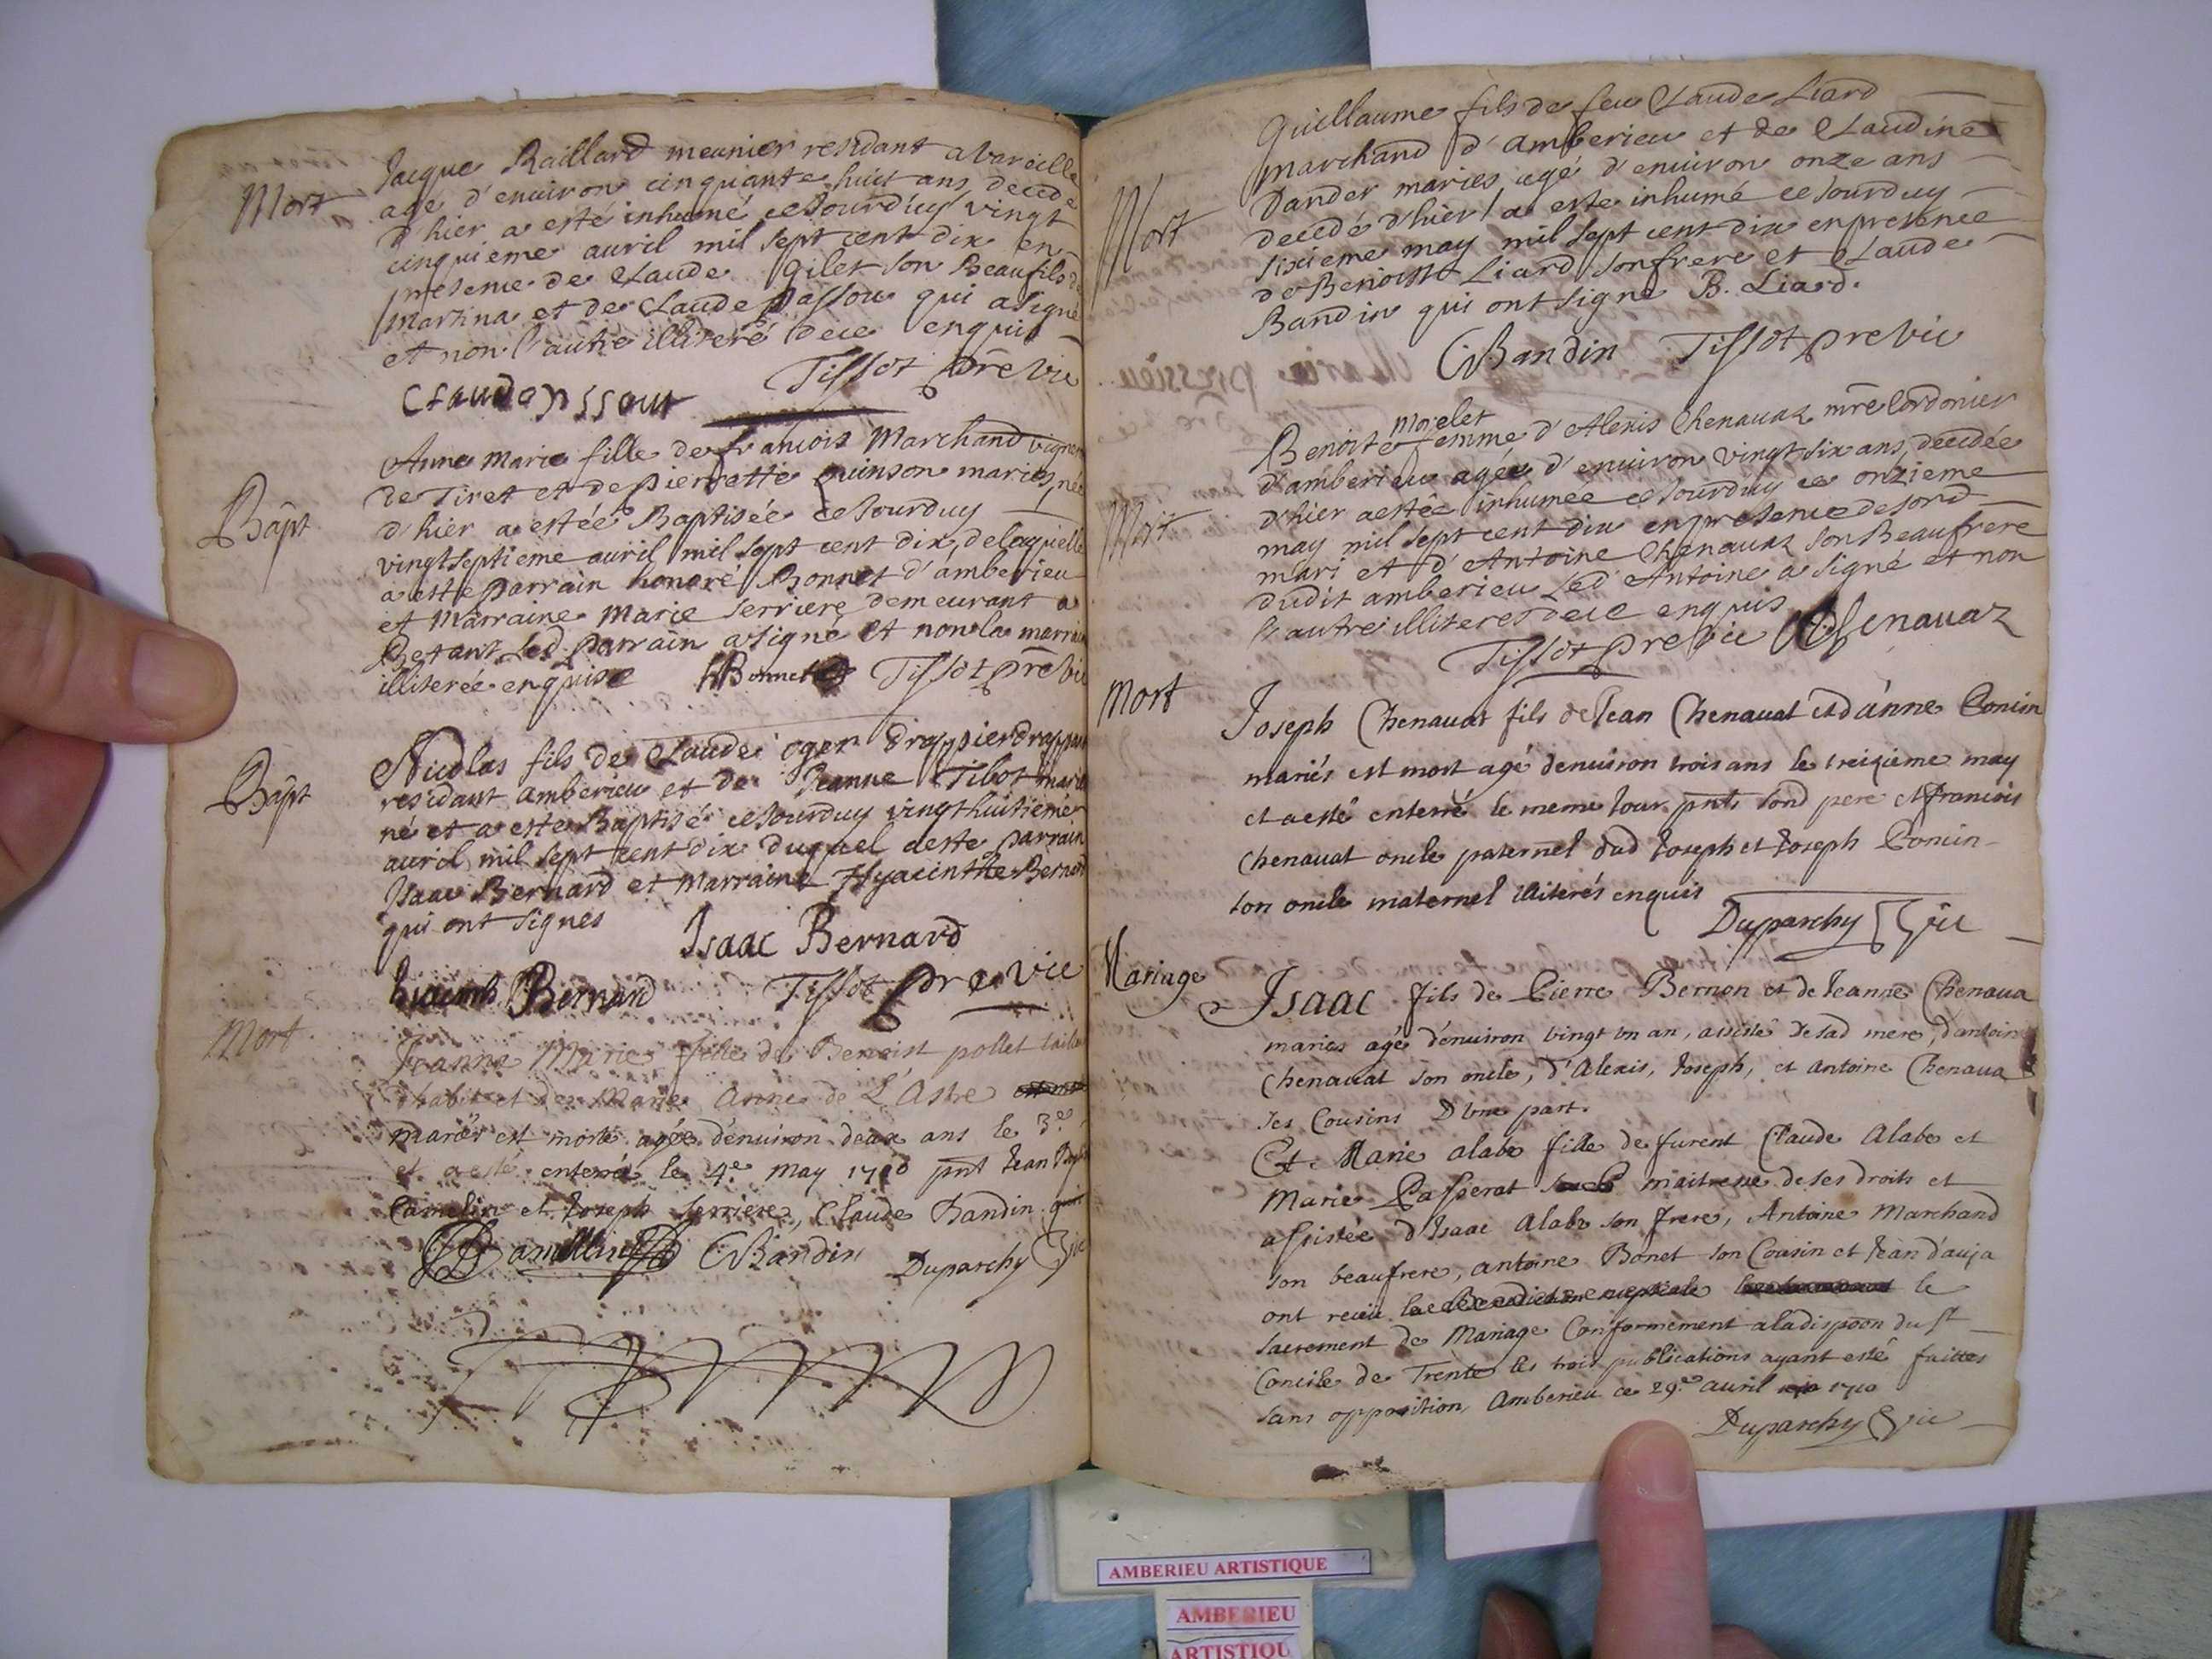 Mort
Jacque Raillard meunier residant a Vareille
agé d'enuiron cinquante huit ans, decedé
d'hier a esté inhumé ce Jourd'uy vingt
cinquieme auril mil sept cent dix en
presence de Claude Gilet son Beaufils de
Martina et de Claude passou qui a signé
et non l'autre illiteré de ce enquis
Tissot pre vic
Bapt
Anne Marie fille de francois Marchand vigneron
de Tiret et de pierrette quinson maries, née
d'hier a estée Baptisée ce Jourduy
vingtseptieme auril mil sept cent dix, de laquelle
a esté parrain honoré Bonnet d'amberieu
et Marraine Marie Serriere demeurant a
Betant, led. parrain a signé et non la marraine
illiterée enquise HBonnet Tissot pre vic
Bapt
Nicolas fils de Claude oger drappier drappant
residant amberieu et de Jeanne Tibot maries
né et a esté Baptisé ce Jourduy vingthuitieme
auril mil sept cent dix duquel a esté parrain
Isaac Bernard et Marraine Hyacinthe Bernard
qui ont signes
Isaac Bernard
Bernard Tissot pre vic
Mort
Jeanne Marie fille de Benoist pollet tailleur
d'habit et de Marie Anne de L'Astre
mariés est morte agée d'enuiron deux ans le 3e
et a esté enterrée le 4e May 1710 pnt Jean
Camelin et Joseph Serriere, Claude Bandin
CBandin Duparchy vic
Mort
Guillaume fils de feu Claude Liard
marchand d'Amberieu et de Claudine
Dander maries, agé d'enuiron onze ans
decedé d'hier a esté inhumé ce Jourduy
sixieme may mil sept cent dix en presence
de Benoist Liard son frere et Claude
Bandin qui ont signé B. Liard.
CBandin Tissot pre vic
Mort
morelet
Benoite femme d'Alexis Chenauaz mre Cordonier
d'amberieu agée d'enuiron vingt six ans, decedée
d'hier a estée inhumée ce Jourduy ce onzieme
may mil sept cent dix en presence de sond
mari et d'Antoine Chenauaz son Beaufrere
dudit amberieu Led Antoine a signé et non
l'autre illiteres de ce enquis
Tissot pre vic AChenauaz
Mort
Joseph Chenauat fils de Jean Chenauat et d'anne Concin
mariés est mort agé d'enuiron trois ans le treizieme may
et a esté enterré le meme Jour pnts sond pere et francois
Chenauat oncle paternel dud Joseph et Joseph Concin
son oncle maternel illiterés enquis
Duparchy vic
Mariage
Isaac fils de Pierre Bernon et de Jeanne Chenaua
maries agé d'enuiron vingt un an, assisté de sad mere, d'antoine
Chenauat son oncle, d'Alexis, Joseph, et Antoine Chenaua
ses Cousins D'une part.
Et Marie alabe fille de furent Claude Alabe et
Marie Passerat maitresse de ses droits et
assistée d'Isaac Alabe son frere, Antoine Marchand
son beaufrere, antoine Bonet son Cousin et Jean d'auja
ont receu la Benediction nuptiale le
sacrement de Mariage Conformement a la dispoon du St
Concile de Trente les trois publications ayant esté faittes
sans opposition, Amberieu ce 29e auril 1710
Duparchy vic
AMBERIEU ARTISTIQUE
AMBERIEU
ARTISTIQU